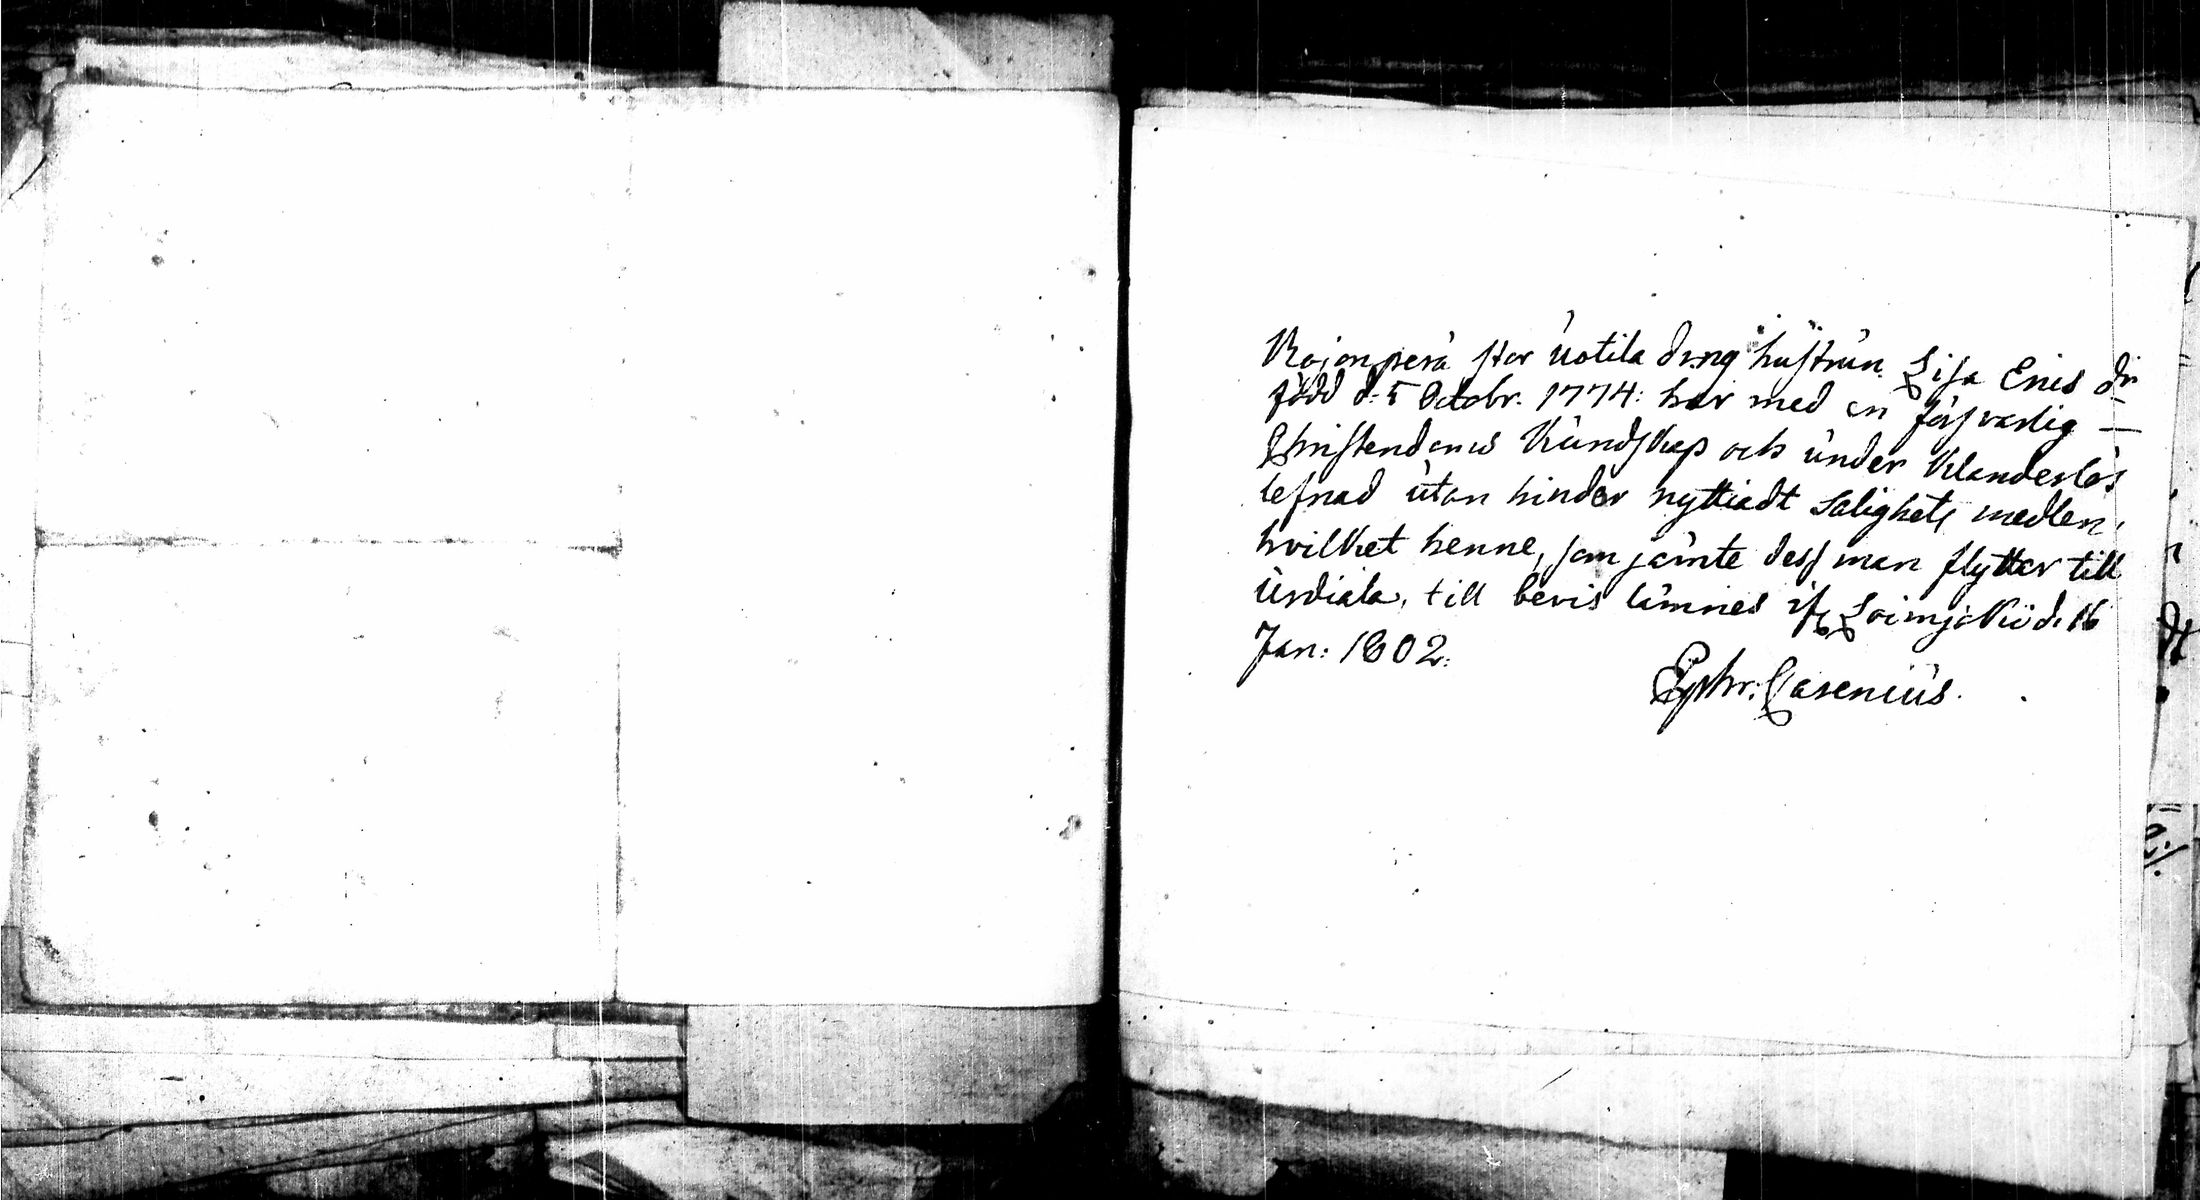 Kojonperä stor Uotila dräng hustrun Lisa Erics dr
född d. 5 Octobr. 1774: har med en försvarlig —
Christendoms Kundskap och under Klanderlös
lefnad utan hinder nyttiadt Salighets medlen,
hvilket henne, som jämte dess man flyttar till
Urdiala, till bevis lämnes, if Loimjoki d. 16
Jan: 1802.
Ephr. Casenius.